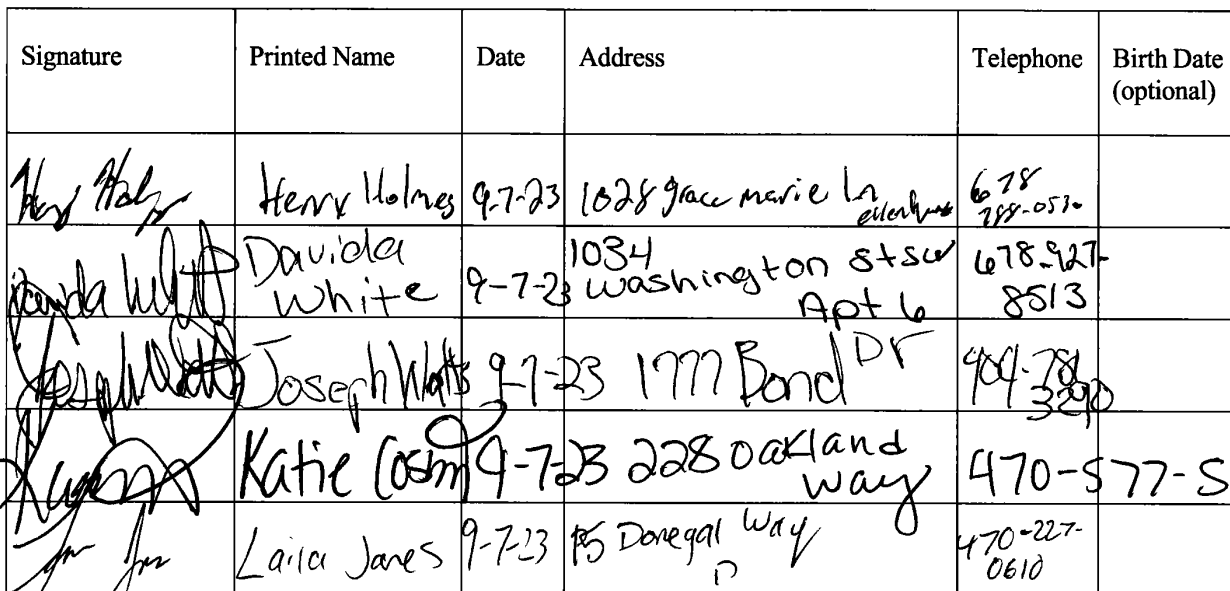 Signature Printed Name Date Address Telephone Birth Date
(optional)
Henry Holmes 9-7-23 1028 grace marie Ln 678
788-053
Davida White 9-7-23 1034 Washington St SW Apt 6 678-927-
8513
Joseph Watts 9-7-23 1777 Bond Dr 404-781
3290
Katie 9-7-23 228 oakland way 470-577-5
Laila Janes 9-7-23 Donegal Way 470-227-
0610